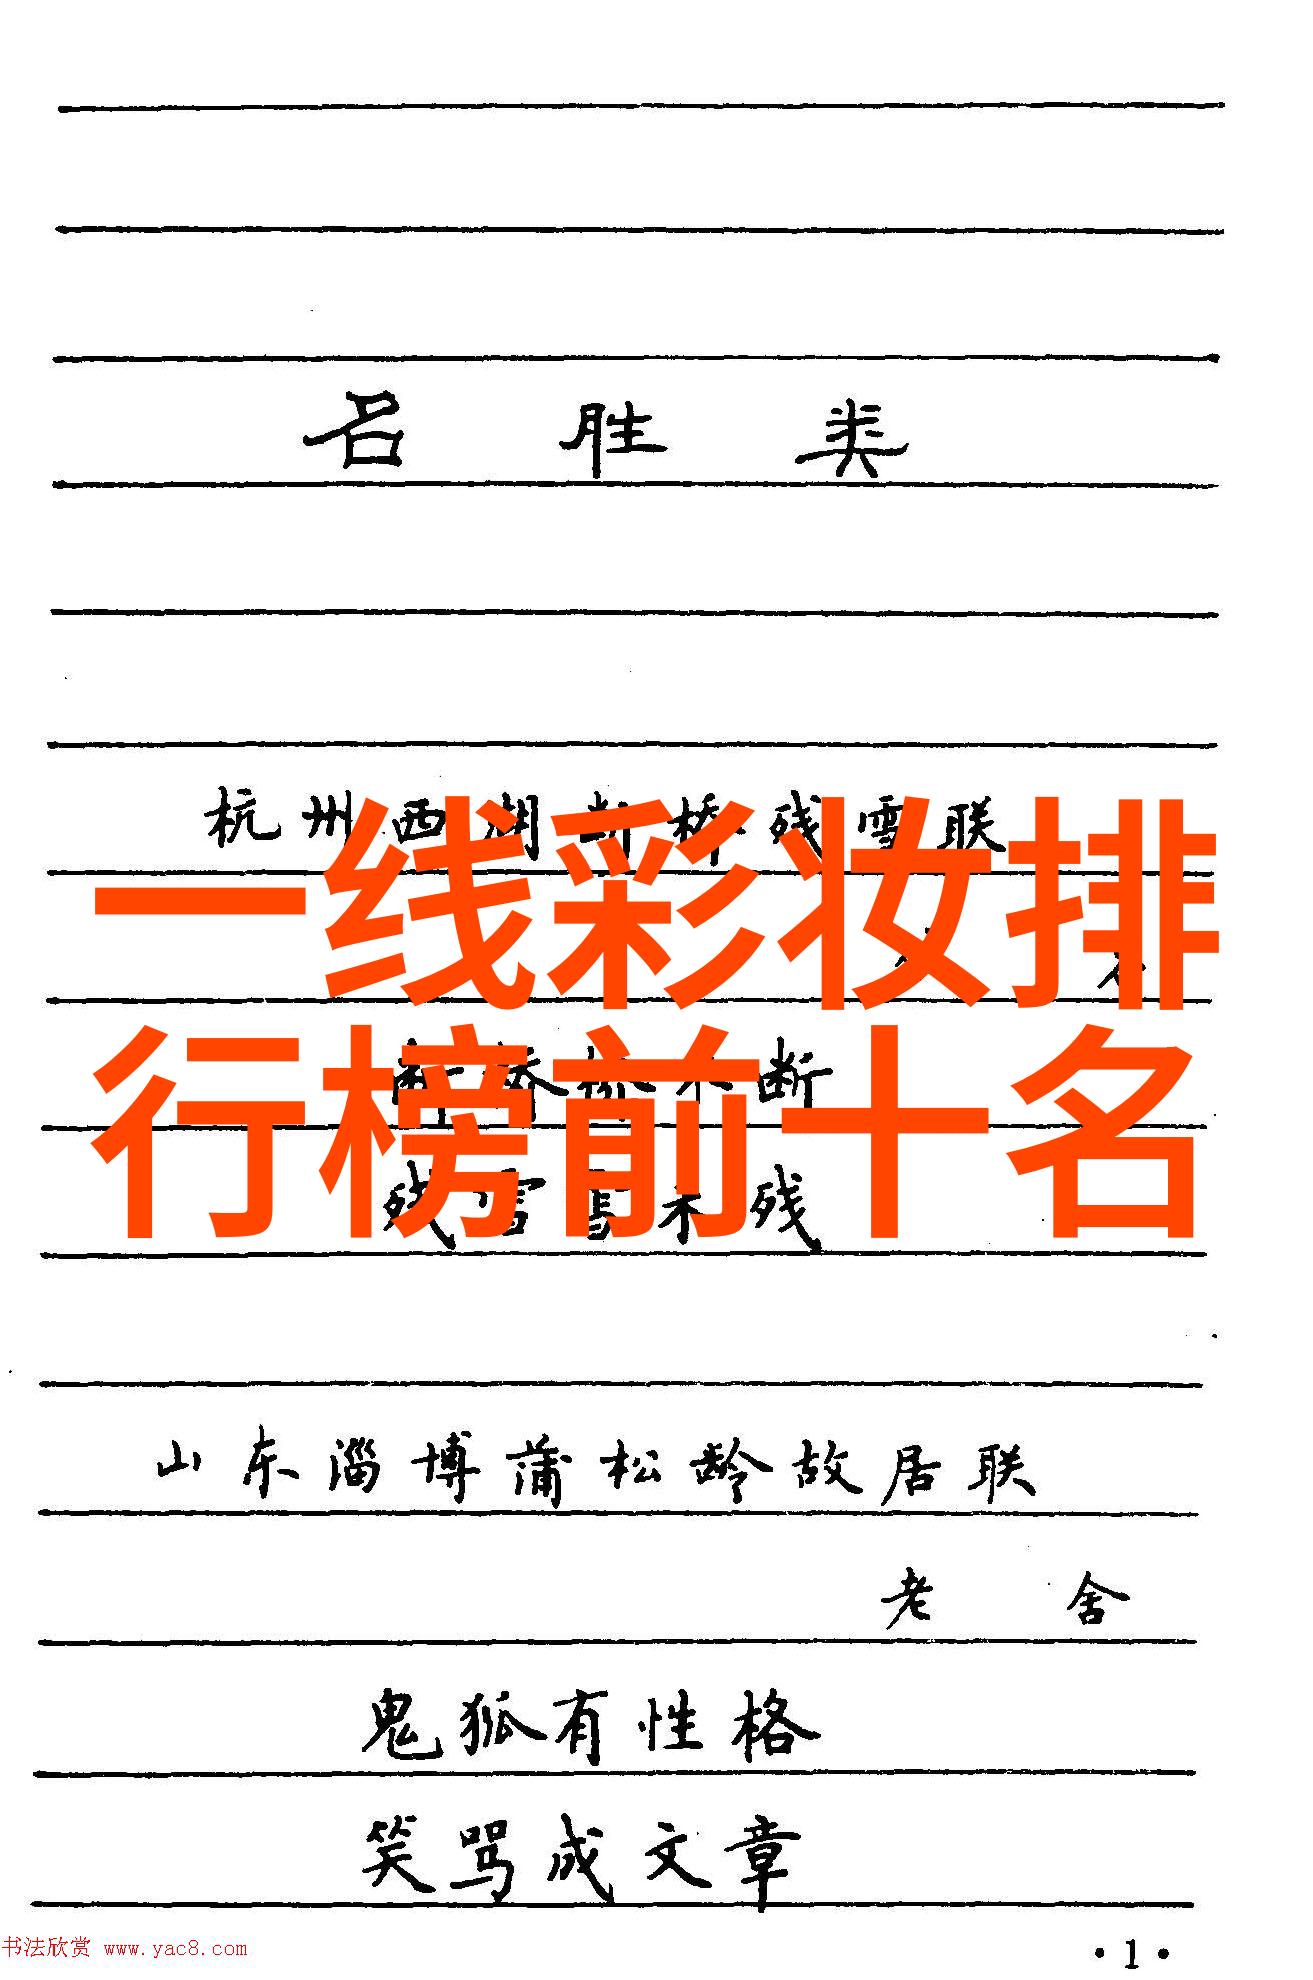 名胜类
杭州西湖断桥残雪联
一线彩妆排
行榜前十名
断桥桥不断
残雪雪未残
山东淄博蒲松龄故居联
老舍
鬼狐有性格
笑骂成文章
书法欣赏 www.yac8.com
·1·